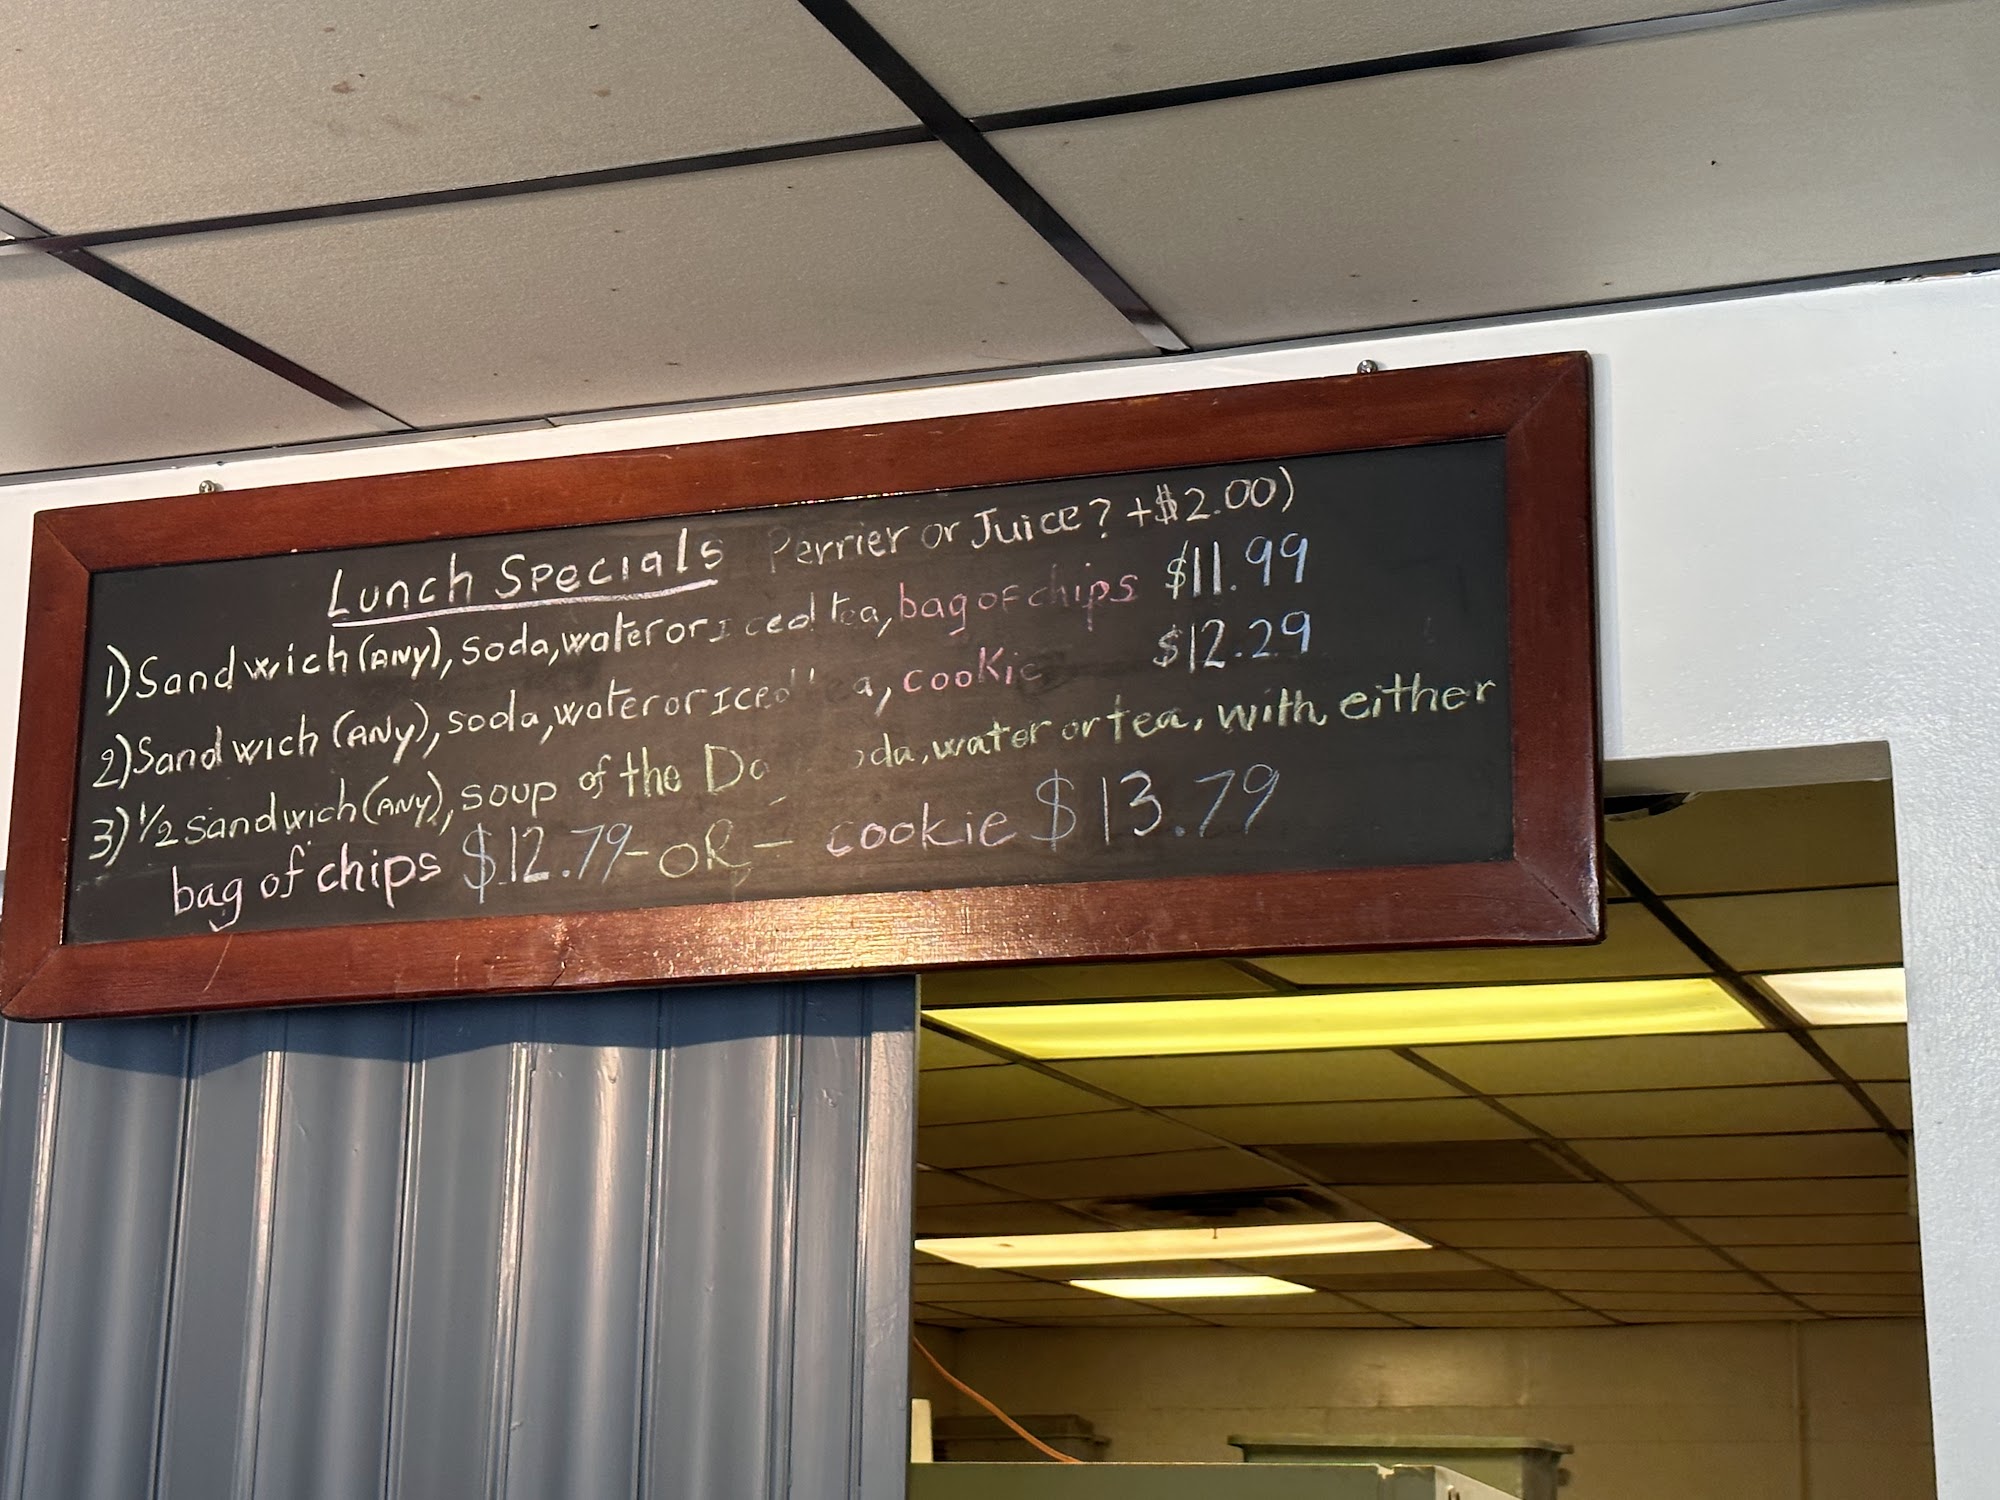 Lunch Specials Perrier or Juice? +$2.00)
1) Sandwich (ANY), Soda, water or Iced tea, bag of chips $11.99
2) Sandwich (ANY), soda, water or Iced tea, cookie $12.29
3) 1/2 sandwich (ANY), soup of the Day, soda, water or tea, with either
bag of chips $12.79 - OR - cookie $13.79